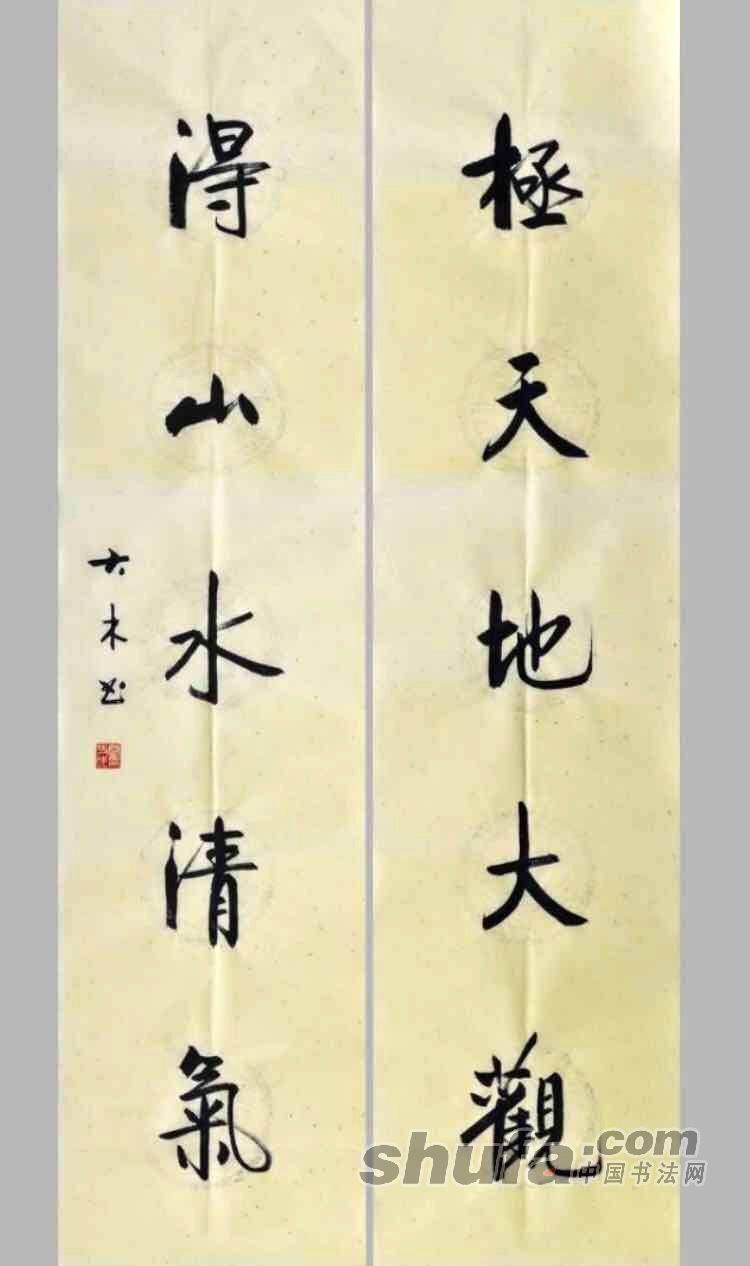 極天地大觀
得山水清氣
大木书
shufa.com
中国书法网